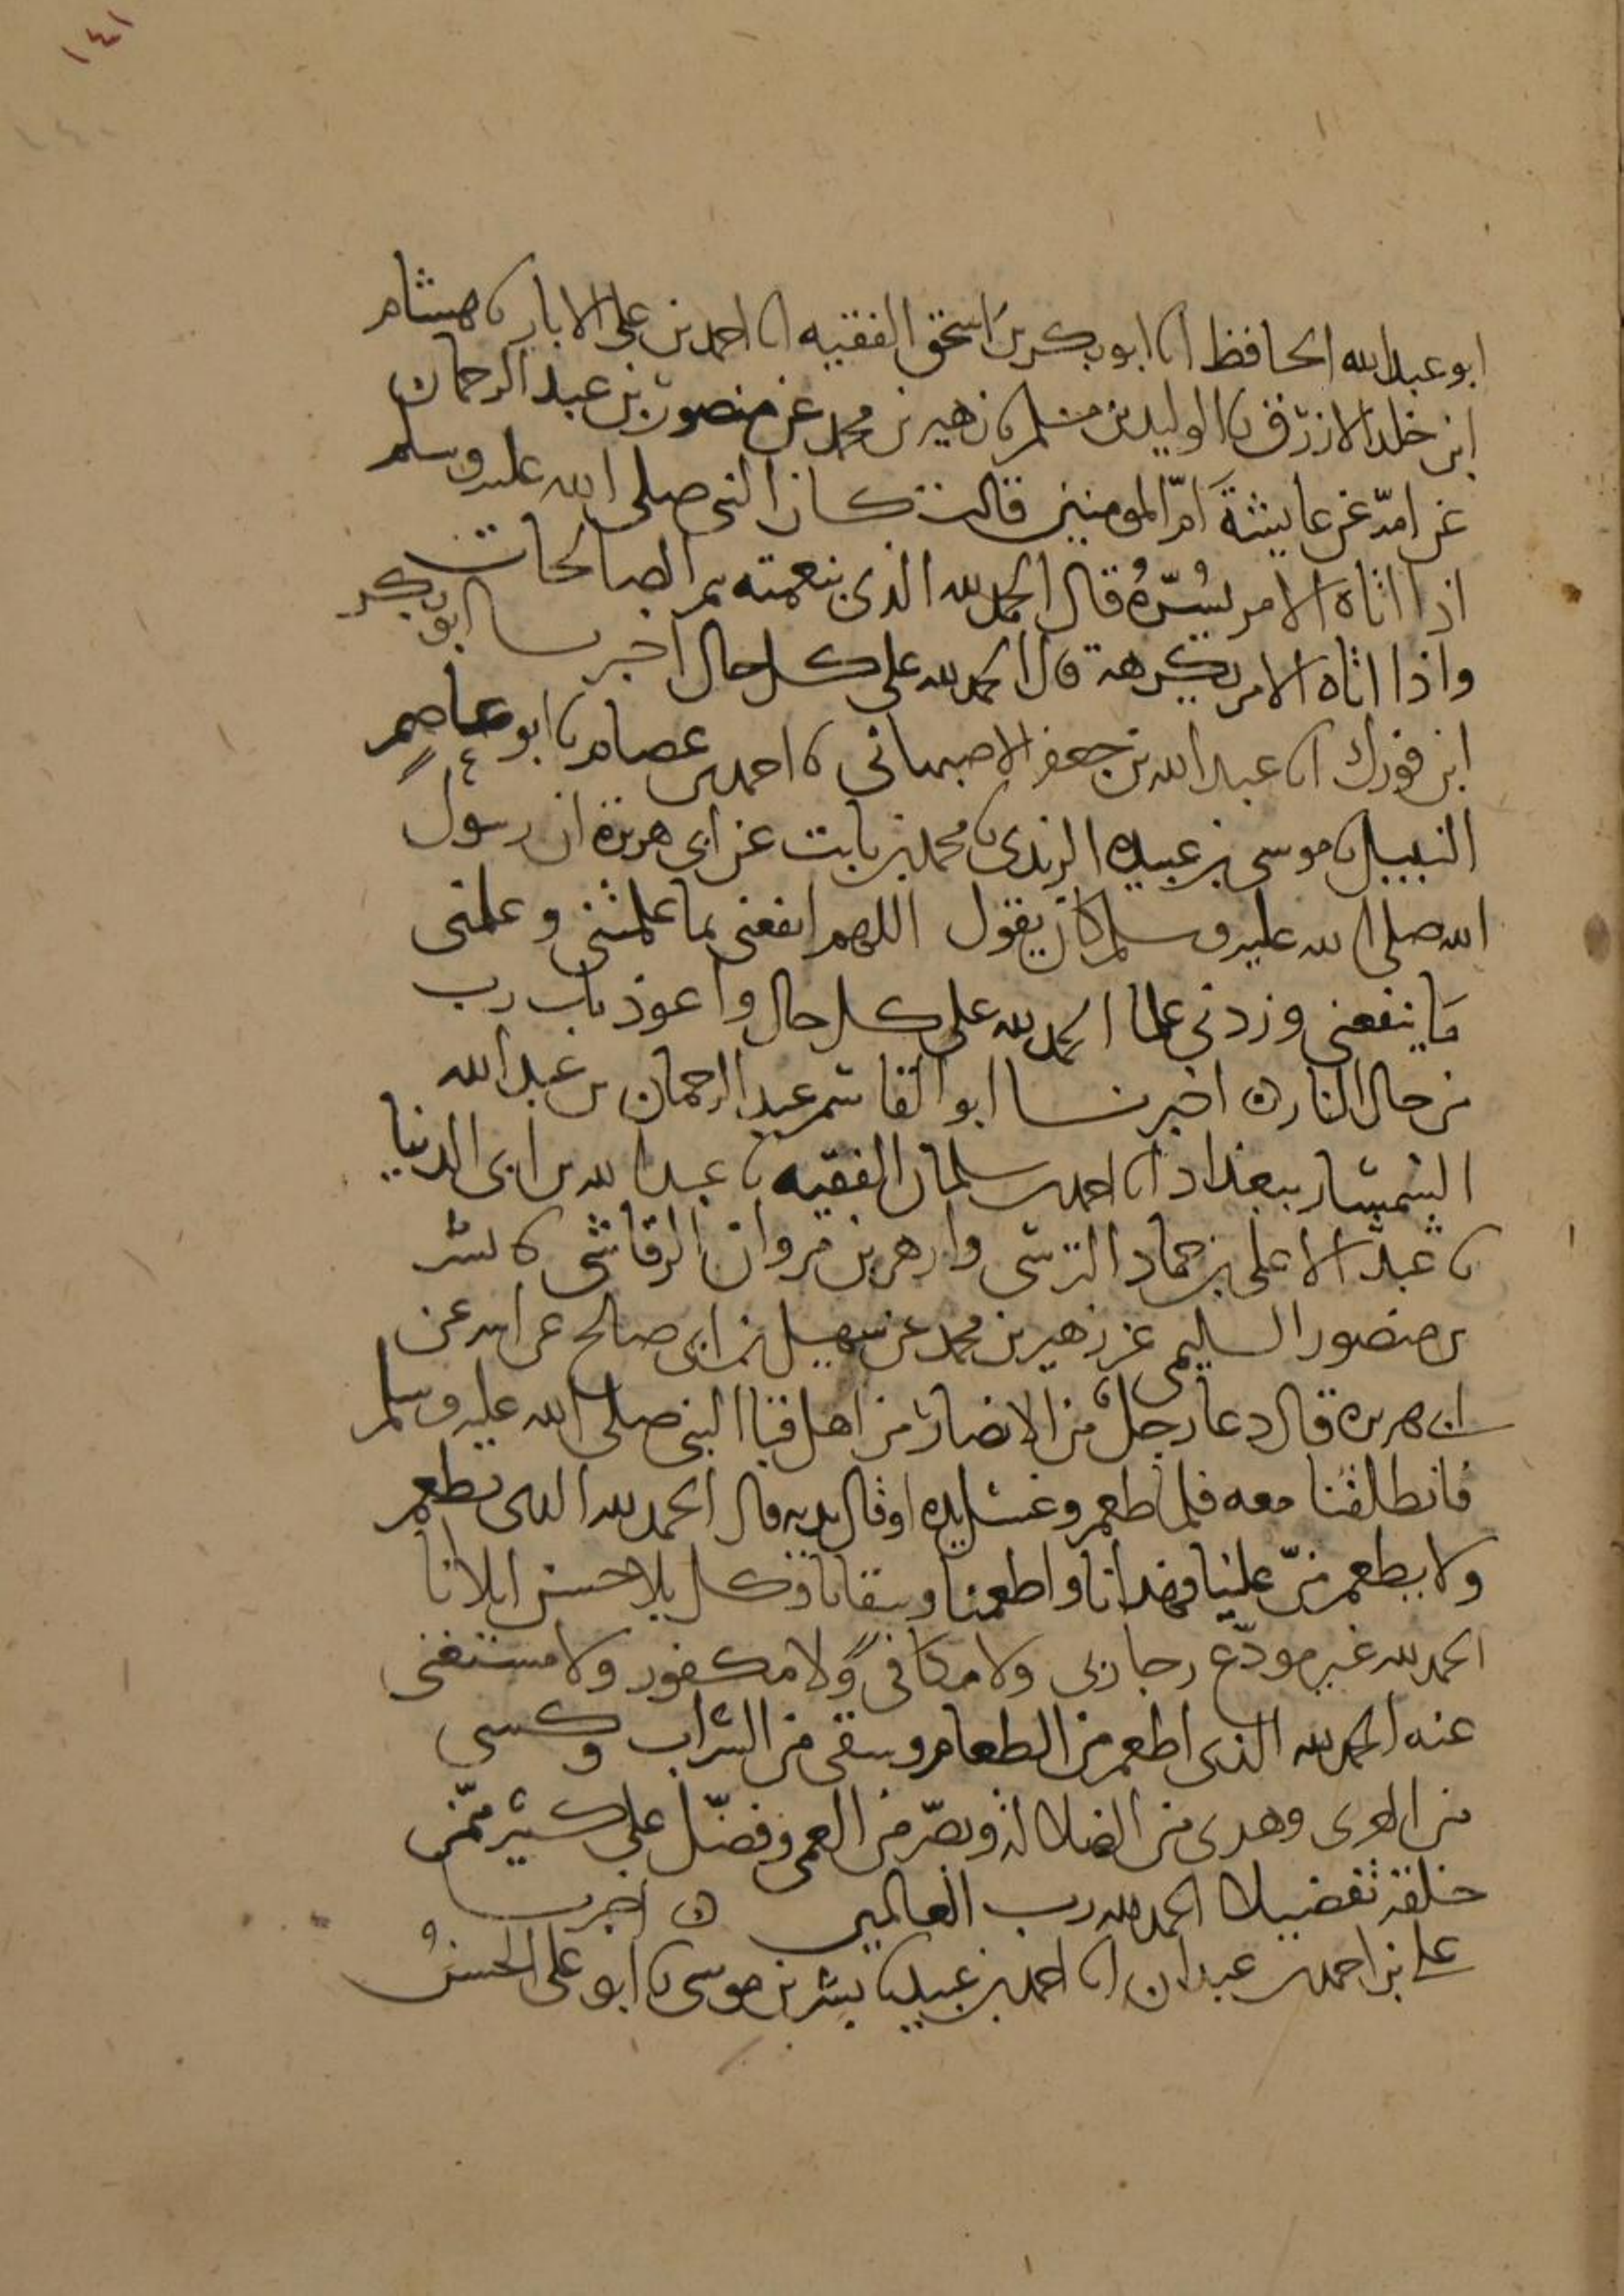 ١٤١
ابو عبد الله الحافظ انا ابو بكر بن اسحق الفقيه انا احمد بن علي الابار نا هشام
ابن خلد الازرق نا الوليد بن مسلم نا زهير بن محمد عن منصور بن عبد الرحمان
عن امه عن عايشة ام المومنين قالت كان النبي صلى الله عليه وسلم
اذا اتاه الامر يسُرّهُ قال الحمد لله الذي بنعمته تم الصالحات
واذا اتاه الامر يكرهه قال الحمد لله على كل حال اخبرنا ابو بكر
ابن فورك انا عبد الله بن جعفر الاصبهاني نا احمد بن عصام نا ابو عاصم
النبيل نا موسى بن عبيده الربذي نا محمد بن ثابت عن ابي هريرة ان رسول
الله صلى الله عليه وسلم كان يقول اللهم انفعني بما علمتني وعلمني
ما ينفعني وزدني علما الحمد لله على كل حال واعوذ بك رب
من حال النار اخبرنا ابو القاسم عبد الرحمان بن عبد الله
السمسار ببغداد انا احمد بن سلمان الفقيه نا عبد الله بن ابي الدنيا
نا عبد الاعلى بن حماد النرسي وازهر بن مروان الرقاشي نا بشر
بن منصور السليمي عن زهير بن محمد عن سهيل بن ابي صالح عن ابيه عن
ابي هريره قال دعا رجل من الانصار من اهل قبا النبي صلى الله عليه وسلم
فانطلقنا معه فلما طعم وغسل يده او قال يديه قال الحمد لله الذي يطعم
ولا يطعم منّ علينا فهدانا واطعمنا وسقانا وكل بلا حسن ابلانا
الحمد لله غير مودّع ربي ولا مكافي ولا مكفور ولا مستغنى
عنه الحمد لله الذي اطعم من الطعام وسقى من الشراب وكسى
من العرى وهدى من الضلالة وبصّر من العمى وفضّل على كثير ممّن
خلقه تفضيلا الحمد لله رب العالمين اخبرنا
علي بن احمد بن عبدان انا احمد بن عبيد نا بشر بن موسى نا ابو علي الحسن